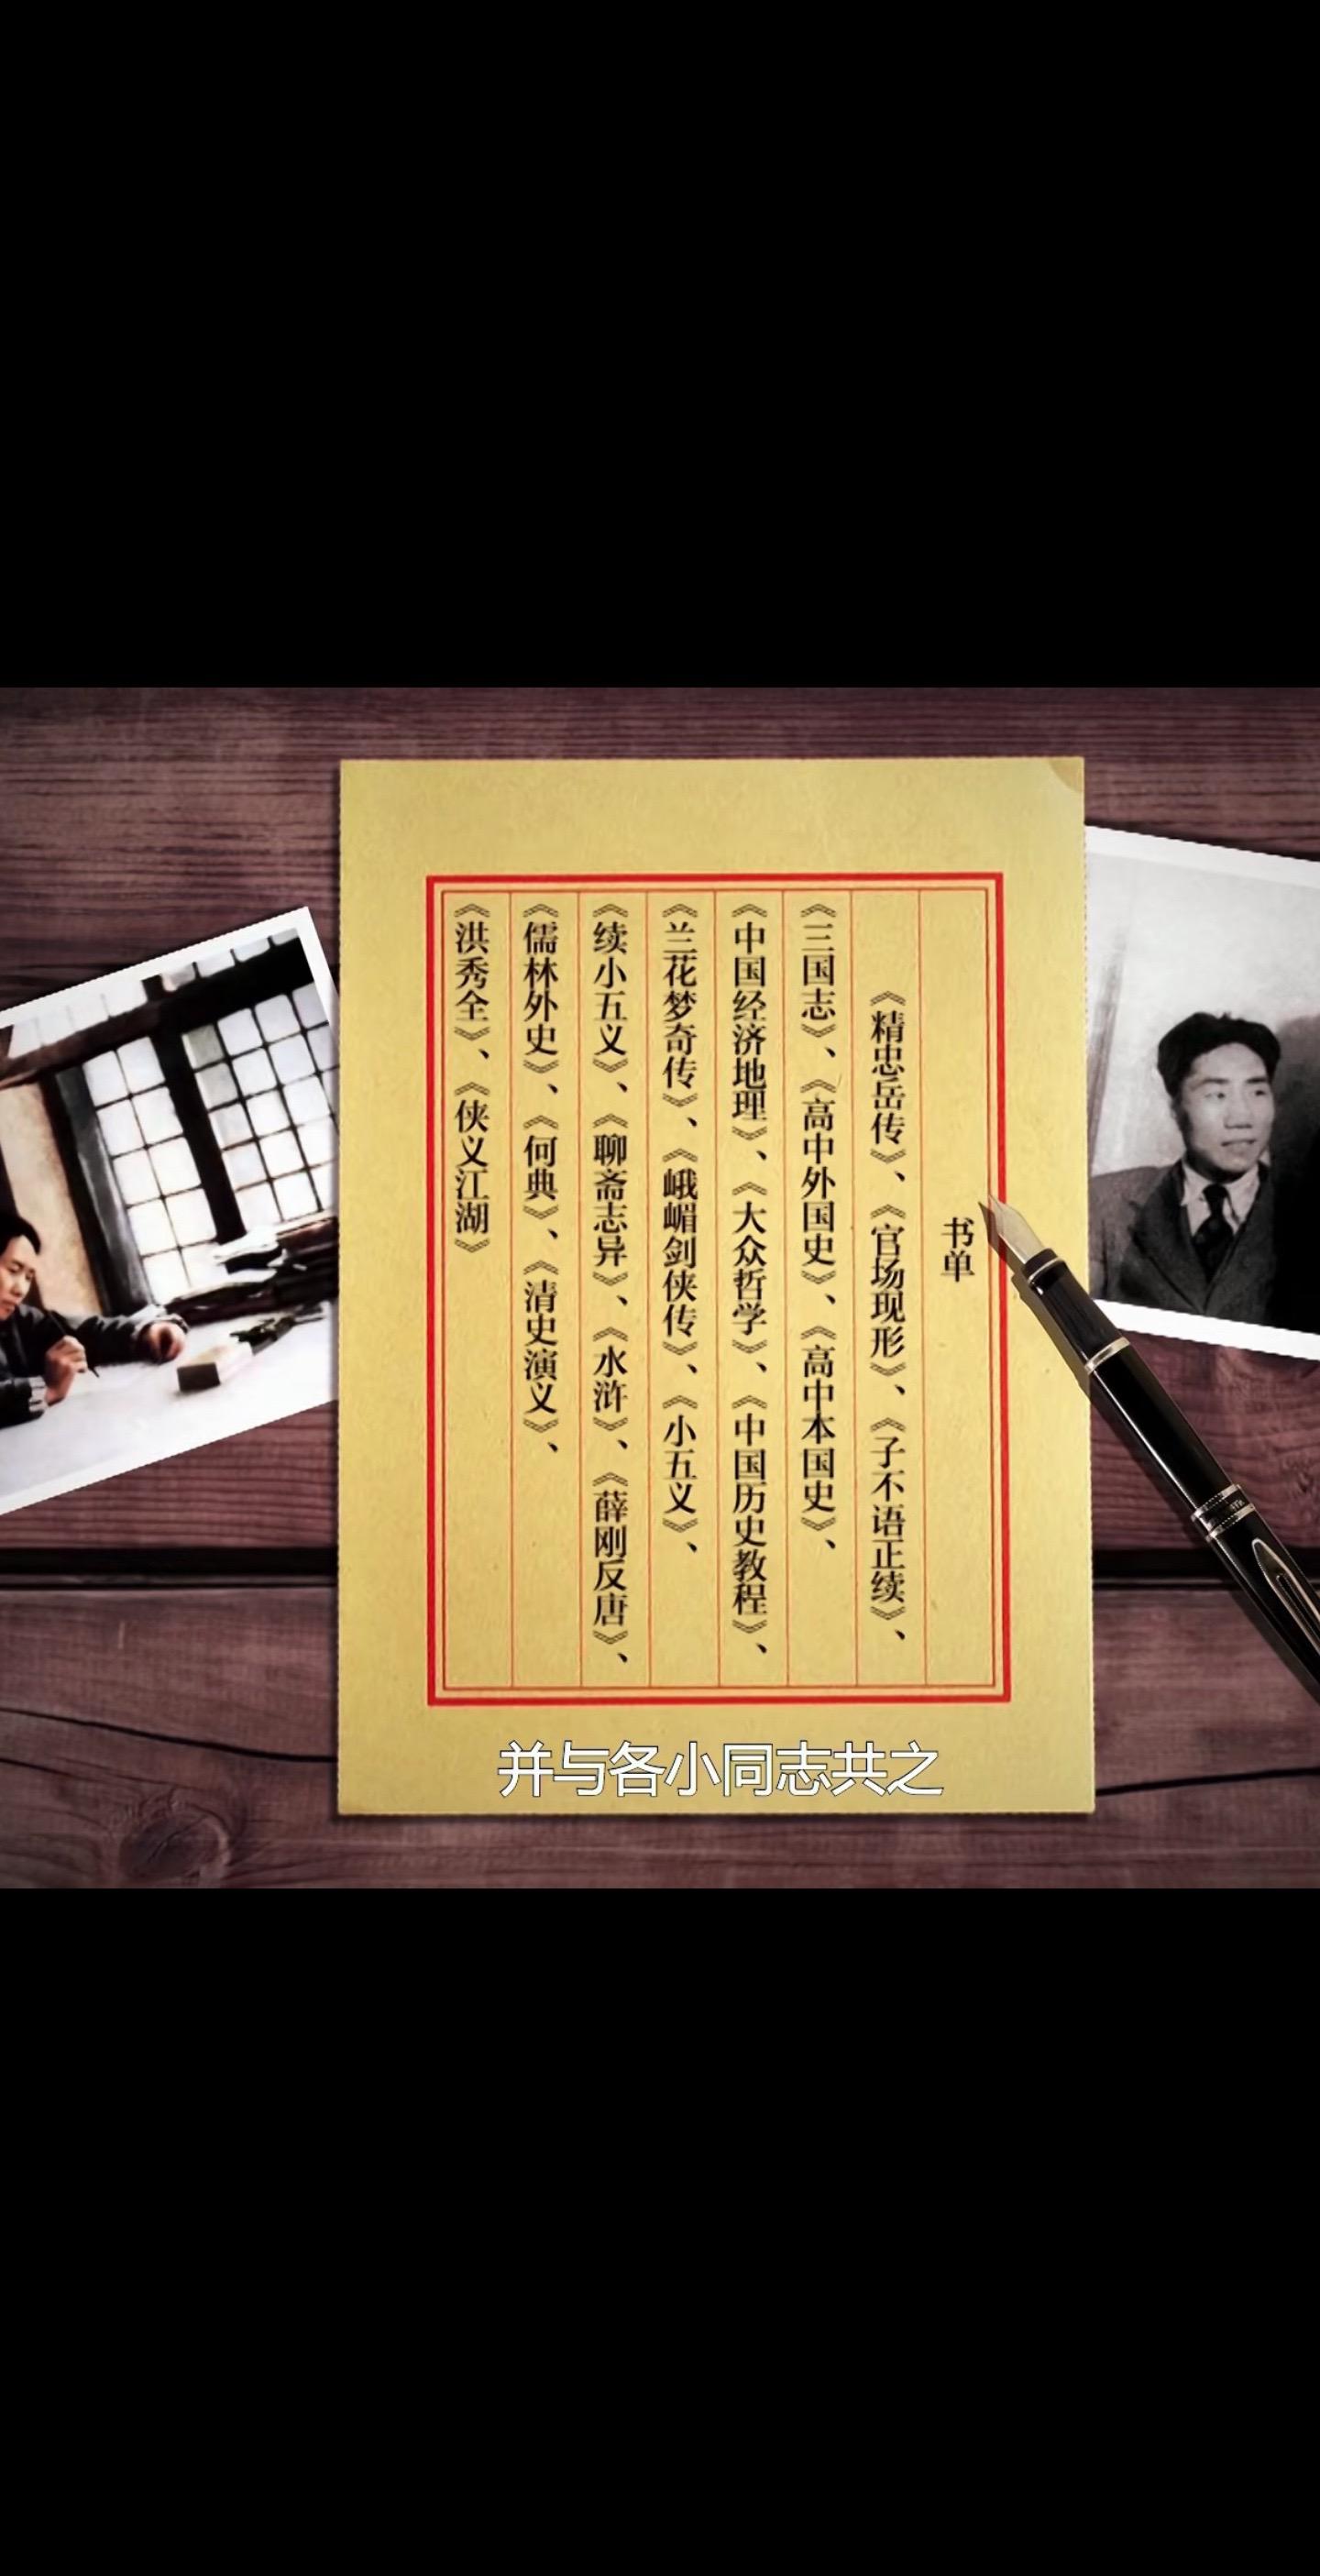 书单
《精忠岳传》、《官场现形》、《子不语正续》、
《三国志》、《高中外国史》、《高中本国史》、
《中国经济地理》、《大众哲学》、《中国历史教程》、
《兰花梦奇传》、《峨嵋剑侠传》、《小五义》、
《续小五义》、《聊斋志异》、《水浒》、《薛刚反唐》、
《儒林外史》、《何典》、《清史演义》、
《洪秀全》、《侠义江湖》
并与各小同志共之